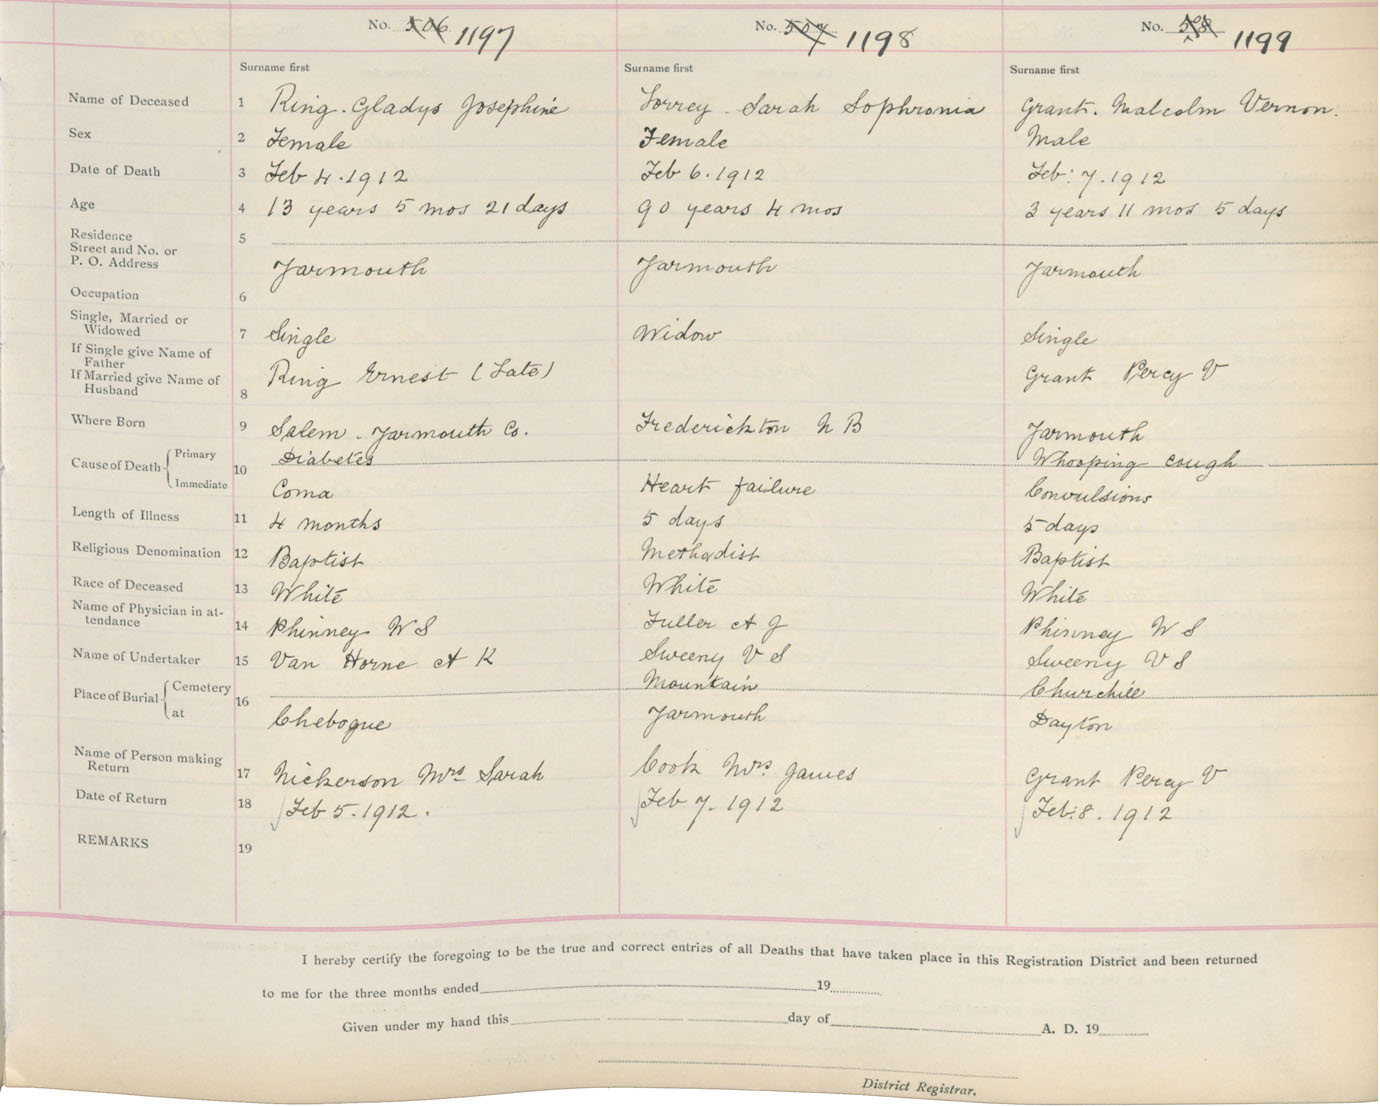 No. 506 1197 No. 507 1198 No. 508 1199
Surname first Surname first Surname first
Name of Deceased 1 Ring. Gladys Josephine Torrey. Sarah Sophronia Grant. Malcolm Vernon.
Sex 2 Female Female Male
Date of Death 3 Feb 4. 1912 Feb 6. 1912 Feb: 7. 1912
Age 4 13 years 5 mos 21 days 90 years 4 mos 3 years 11 mos 5 days
Residence 5
Street and No. or
P. O. Address Yarmouth Yarmouth Yarmouth
Occupation 6
Single, Married or
Widowed 7 Single Widow Single
If Single give Name of
Father
If Married give Name of Ring Ernest (Late) Grant Percy V
Husband 8
Where Born 9 Salem. Yarmouth Co. Frederickton N B Yarmouth
Cause of Death Primary 10 Diabetes Whooping cough
Immediate Coma Heart failure Convulsions
Length of Illness 11 4 months 5 days 5 days
Religious Denomination 12 Baptist Methodist Baptist
Race of Deceased 13 White White White
Name of Physician in at-
tendance 14 Phinney W S Fuller A J Phinney W S
Name of Undertaker 15 Van Horne A K Sweeny V S Sweeny V S
Place of Burial Cemetery 16 Mountain Churchill
at Chebogue Yarmouth Dayton
Name of Person making
Return 17 Nickerson Mrs Sarah Cook Mrs. James Grant Percy V
Date of Return 18 Feb 5. 1912. Feb 7. 1912 Feb: 8. 1912
REMARKS 19
I hereby certify the foregoing to be the true and correct entries of all Deaths that have taken place in this Registration District and been returned
to me for the three months ended 19
Given under my hand this day of A. D. 19
District Registrar.